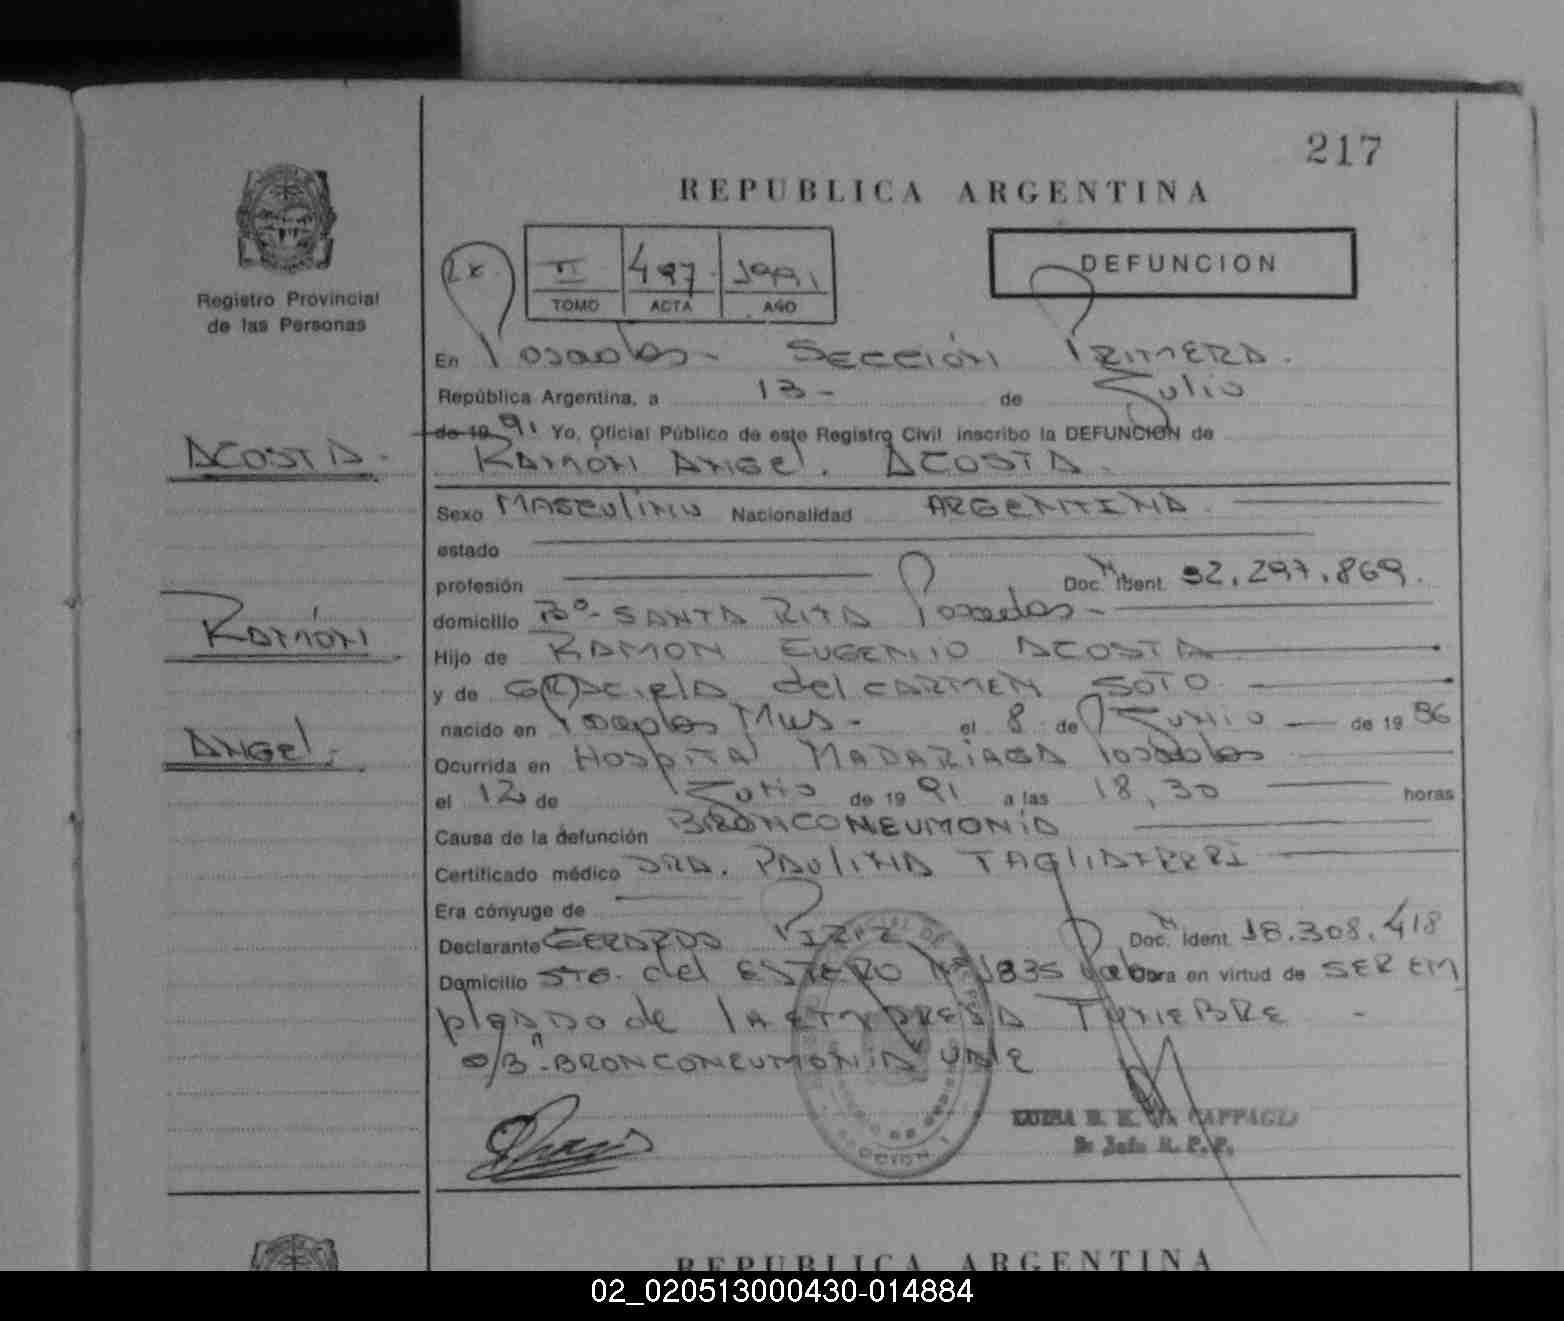 217
REPUBLICA ARGENTINA
Registro Provincial
de las Personas
II 497 1991
TOMO ACTA AÑO
DEFUNCION
En Posadas - SECCIÓN PRIMERA.
República Argentina, a 13 - de Julio
de 19 91 Yo, Oficial Público de este Registro Civil inscribo la DEFUNCION de
ACOSTA.
RAMÓN ANGEl. ACOSTA.
Sexo MASCUlINO Nacionalidad ARGENTINA
estado
profesión Doc. N. Ident. 32.297.869.
domicilio Bº - SANTA RITA Posadas -
RAMÓN
Hijo de RAMON EUGENIO ACOSTA
y de GRACIElA del CARMEN SOTO
nacido en Posadas Mns - el 8 de Junio de 19 86
ANGEl.
Ocurrida en HOSPITAl MADARIAGA Posadas
el 12 de Julio de 19 91 a las 18,30 horas
Causa de la defunción BRONCONEUMONIA
Certificado médico DRA. PAULINA TAGLIAFERRI
Era cónyuge de
Declarante GERARDO Doc. N. Ident. 18.308.418
Domicilio STO. del ESTERO Nº 1835 Obra en virtud de SER EM
plEADO de lA EMPRESA -
BRONCONEUMONIA VALE
SECCION 1
02_020513000430-014884
REPUBLICA ARGENTINA